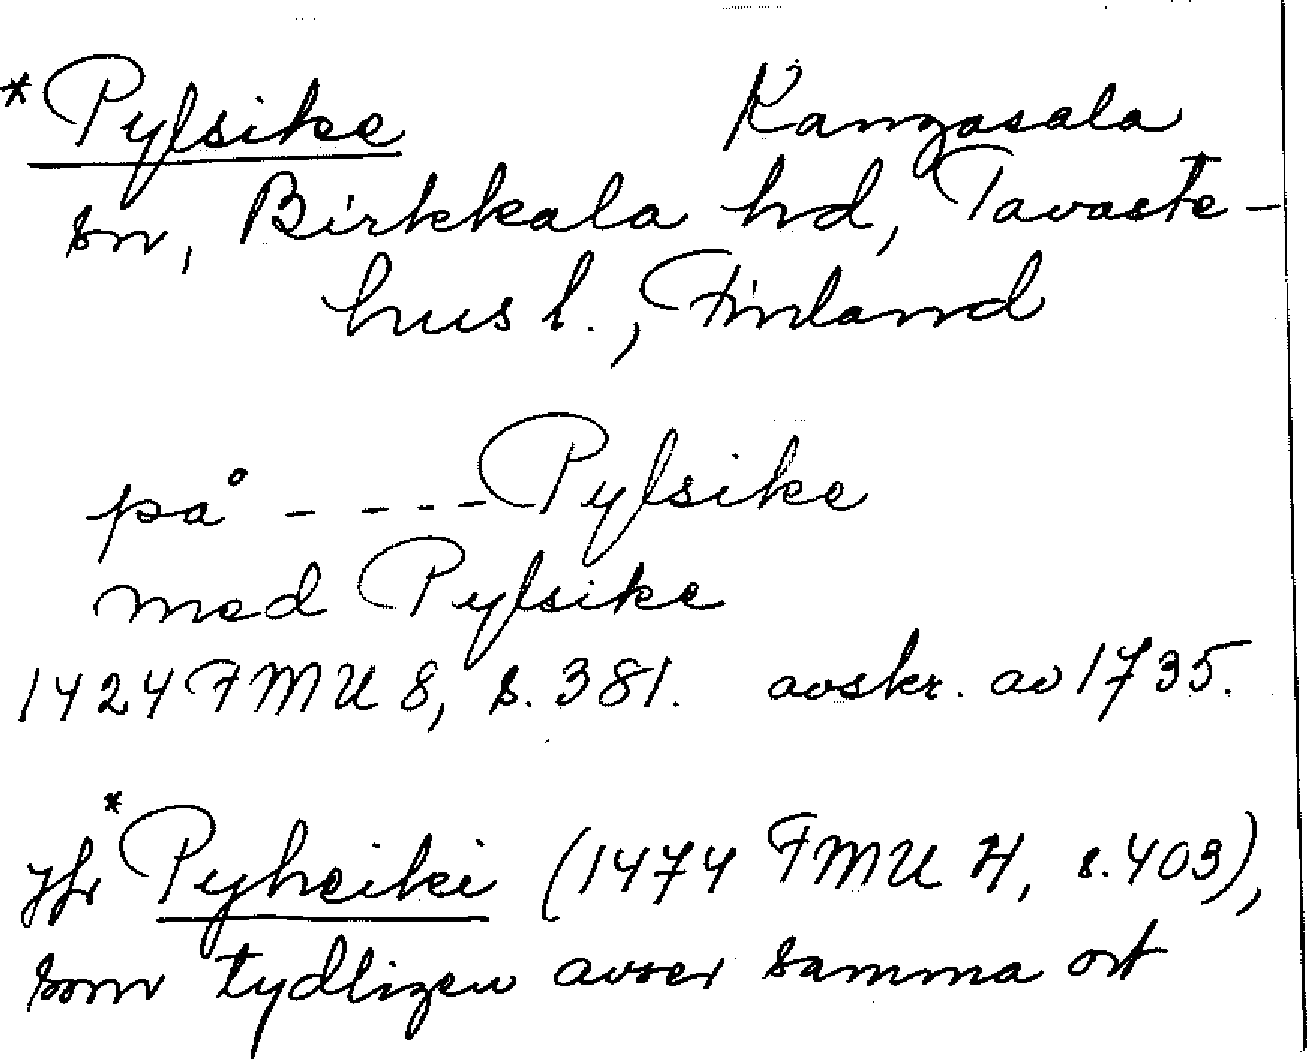 *Pylsike Kangasala
sn, Birkkala hd, Tavaste-
hus l., Finland
på - - - - Pylsike
med Pylsike
1424 FMU 8, s. 381. avskr. av 1735.
Jfr *Pyheiki (1474 FMU 4, s. 403),
som tydligen avser samma ort